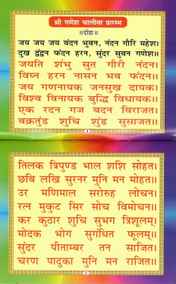 श्री गणेश चालीसा प्रारम्भ
॥दोहा॥
जय जय जय वंदन भुवन, नंदन गौरि महेश।
दुख द्वंद्वन फंदन हरन, सुंदर सुवन गणेश॥
जयति शंभु सुत गौरी नंदन।
विघ्न हरन नासन भव फंदन॥
जय गणनायक जनसुख दायक।
विश्व विनायक बुद्धि विधायक॥
एक रदन गज बदन विराजत।
वक्रतुंड शुचि शुंड सुसाजत॥
तिलक त्रिपुण्ड भाल शशि सोहत।
छबि लखि सुरनर मुनि मन मोहत॥
उर मणिमाल सरोरुह लोचन।
रत्न मुकुट सिर सोच विमोचन॥
कर कुठार शुचि सुभग त्रिशूलम्।
मोदक भोग सुगंधित फूलम्॥
सुंदर पीताम्बर तन साजित।
चरण पादुका मुनि मन राजित॥